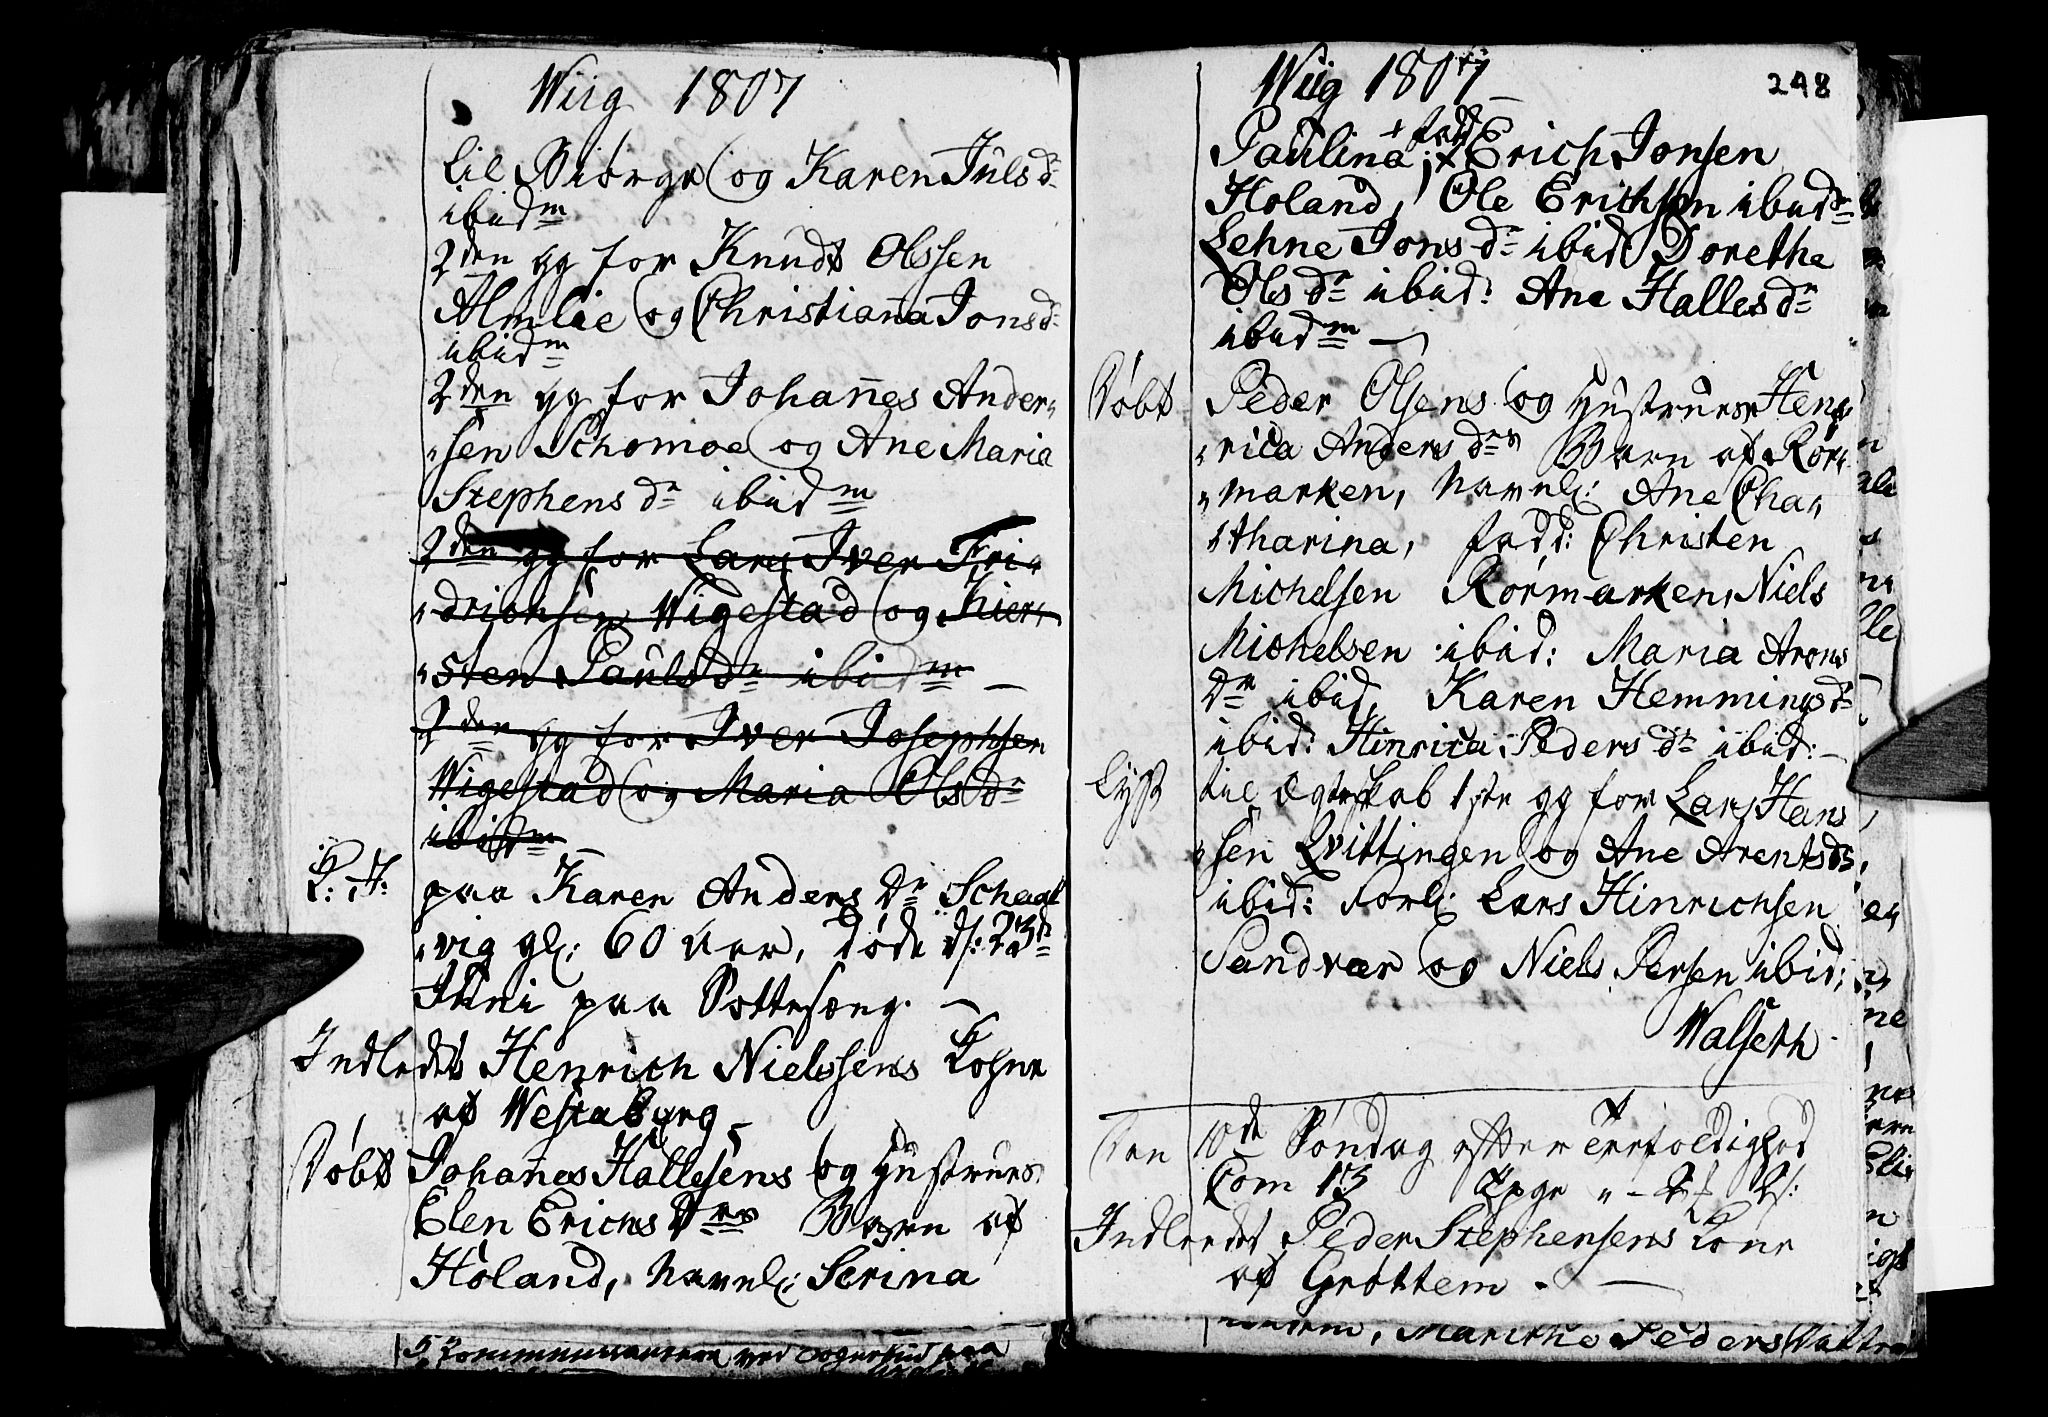 Wiig 1807
lil Biørge og Karen Juls dr
ibidm
2den gg for Knudt Olssen
Almlie og Christianna Jons dr
ibidm
2den gg for Johannes Ander
sen Schomoe og Ane Maria
Stephens dr ibidm
2den gg for Lars Iver Fri
drichsen Wigestad og Kier
sten Pauls dr ibidm
2den gg for Iver Josephsen
Wigestad og Maria Ols dr
ibidm
J: P:
paa Karen Anders Dr Schagt
vig gl: 60 aar, døde d: 23de
Juni paa Sottesæng.
Indledet Henrich Nielssens Kone
af Westaburg
Døbt Johannes Hallesens og Hustrues
Elen Erichs Drs Barn af
Høland, navnl: Serina
5 Communicantere ved Sognebud paa
Wiig 1807
248
Paulina, fadd Erich Jonsen
Holand, Ole Erichsen ibidm
Lehne Jons dr ibid Dorethe
Ols dr ibid: Ane Halles dr
ibidm
Døbt Peder Olsens og Hustrues Hen
rica Anders drs Barn af Rør
marken, navnl: Ane Cha
tharina, fadd: Christen
Michelsen Rørmarken, Niels
Michelsen ibid: Maria Arons
Dr ibid, Karen Hemmings dr
ibid: Hinrica Peders dr ibid:
Lyst til Ægteskab 1ste gg for Lars Hans
sen Qvittingen og Ane Arents dr
ibid: Forl: Lars Hinrichsen
Sandvær og Niels Persen ibid:
Walseth
Den 10de Søndag efter Trefoldighed
Com 13
Indleedet Peder Stephensens Kone
af Grøttem.
Marithe Peders